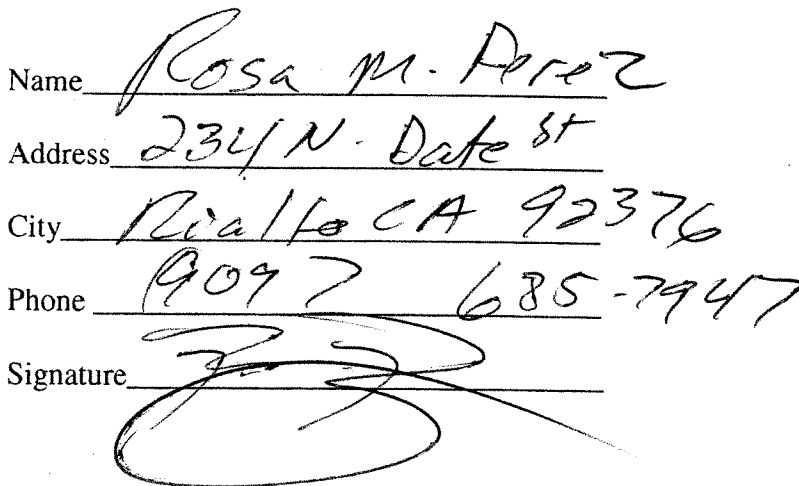 Name Rosa M. Perez
Address 234 N. Date St
City Rialto CA 92376
Phone (909) 685-7947
Signature